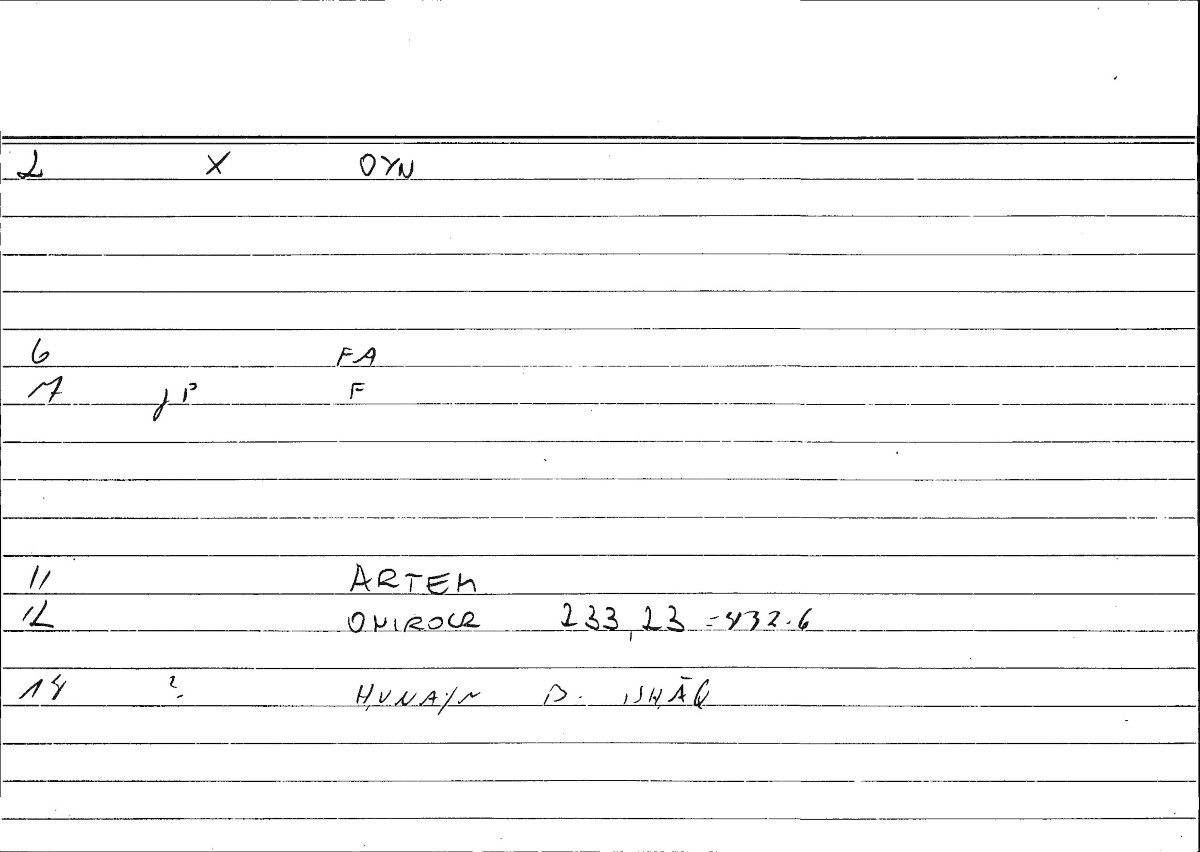 2 X OYN
6 FA
7 JP F
11 ARTEM
12 ONIROCR 233,23 = 432.6
14 ? ḤUNAYN B. ISḤĀQ